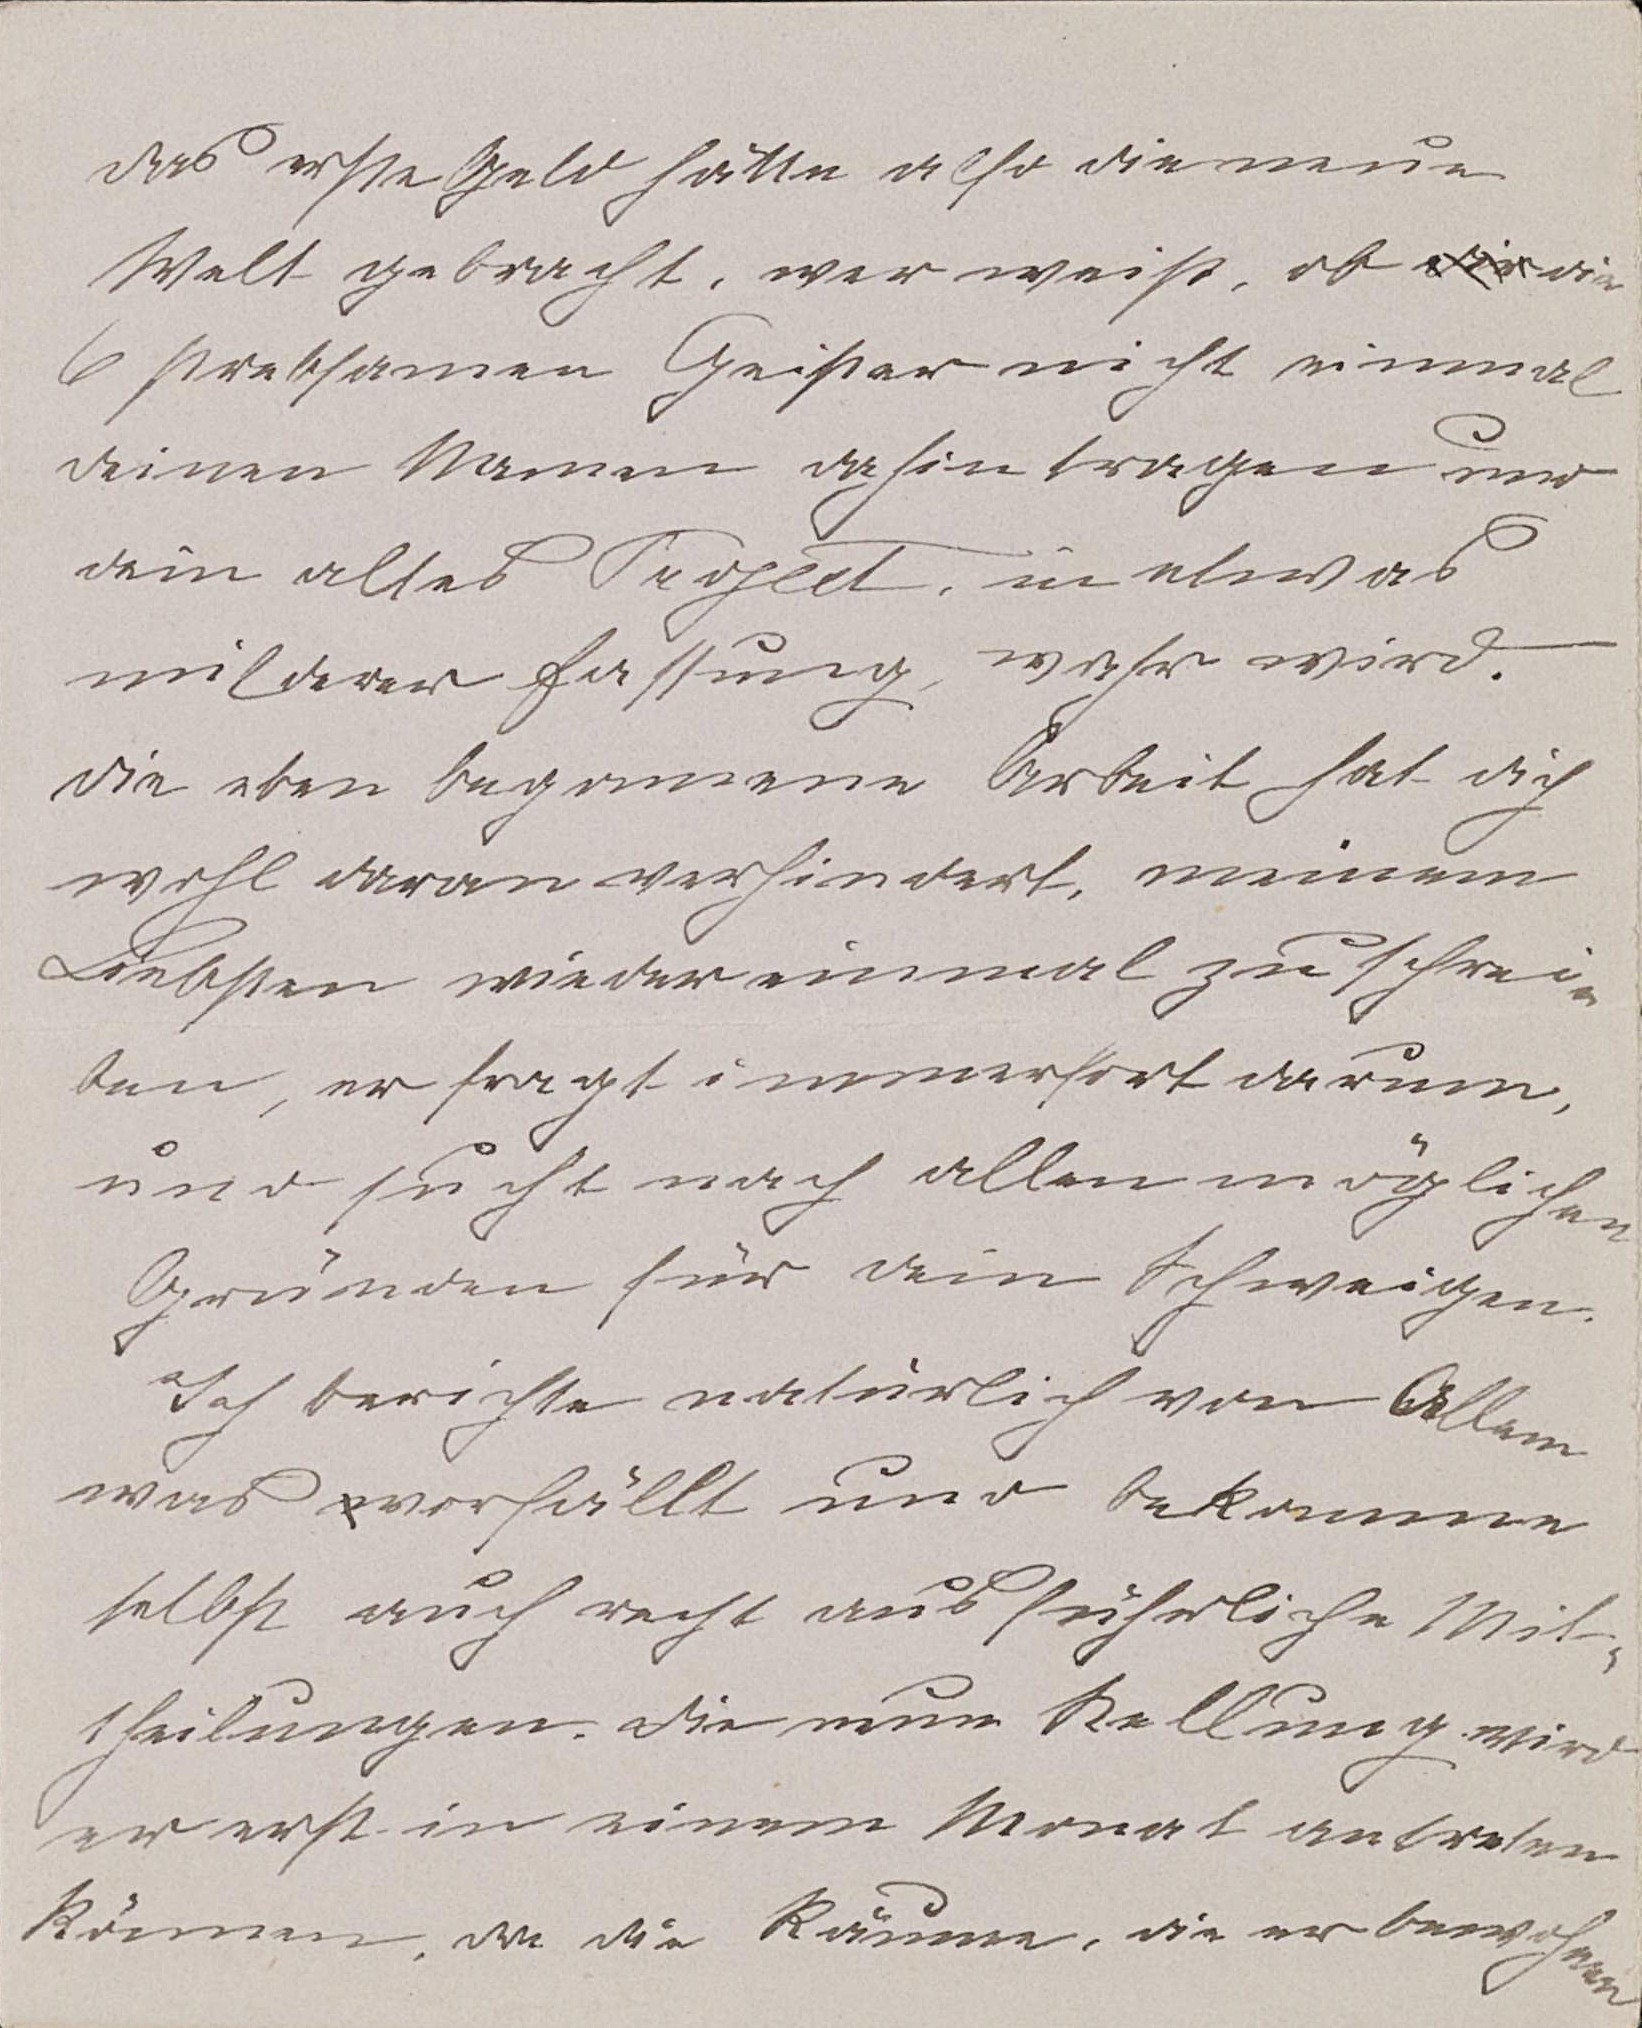 das erste Geld hätte also die neue
Welt gebracht, wer weiß, ob die
6 strebsamen Geister nicht einmal
deinen Namen dahin tragen und
dein altes in etwas
milderer Fassung, wahr wird.
die eben begonnene Arbeit hat dich
wohl daran verhindert, meinem
Liebsten wieder einmal zu schrei-
ben, er fragt immerfort darum,
und sucht nach allen möglichen
Gründen für dein Schweigen.
Ich berichte natürlich von Allem
was vorfällt und bekomme
selbst auch recht ausführliche Mit-
theilungen. die neue Stellung wird
er erst in einem Monat antreten
können, da die Räume, die er bewohnen